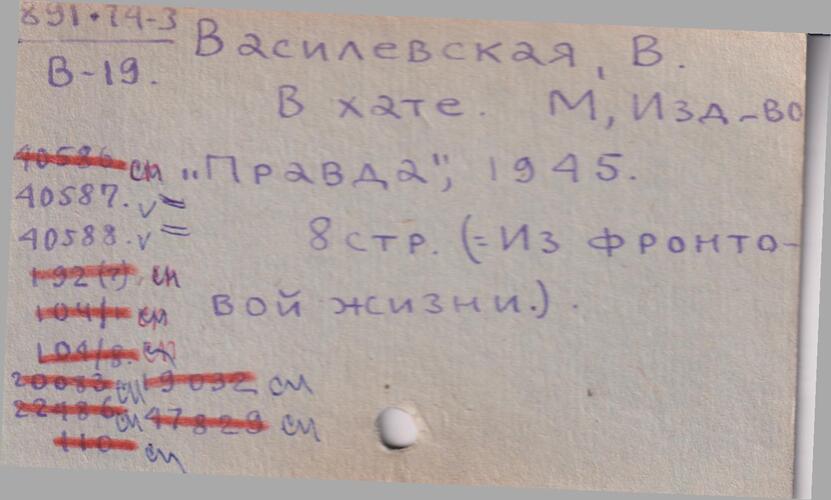 891.74-3
В-19.
Василевская, В.
В хате. М, Изд-во
„Правда", 1945.
8 стр. (=Из фронто-
вой жизни.).
40586 сп
40587. v =
40588. v =
192(?) сп
104/ сп
104/8. сп
20083 сп 19032 сп
22486 сп 47829 сп
110 сп